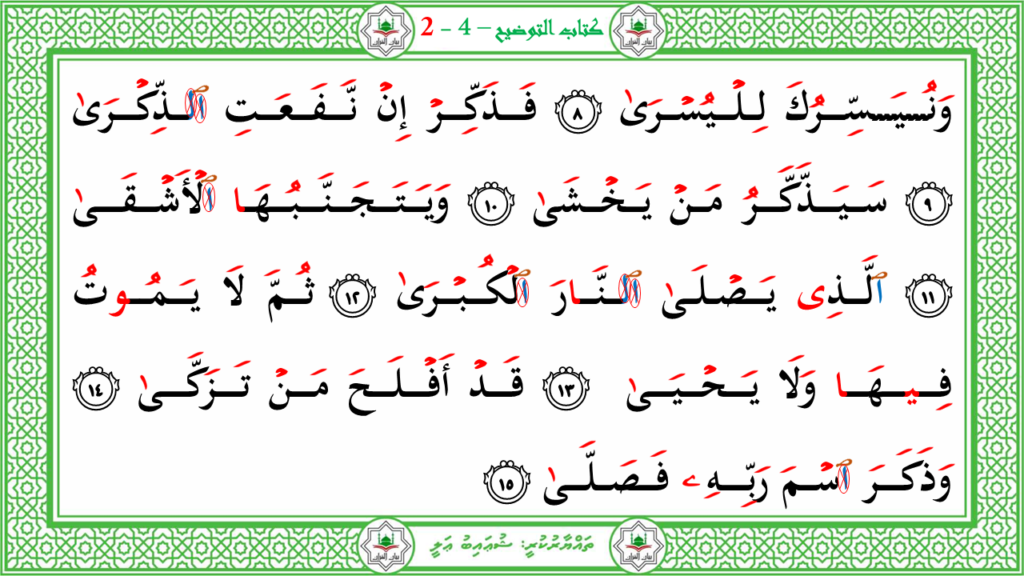 كتاب التوضيح – 4 - 2
وَنُيَسِّرُكَ لِلْيُسْرَىٰ ٨ فَذَكِّرْ إِنْ نَّفَعَتِ ٱلذِّكْرَىٰ
٩ سَيَذَّكَّرُ مَنْ يَخْشَىٰ ١٠ وَيَتَجَنَّبُهَا ٱلْأَشْقَىٰ
١١ ٱلَّذِى يَصْلَىٰ ٱلنَّارَ ٱلْكُبْرَىٰ ١٢ ثُمَّ لَا يَمُوتُ
فِيهَا وَلَا يَحْيَىٰ ١٣ قَدْ أَفْلَحَ مَنْ تَزَكَّىٰ ١٤
وَذَكَرَ ٱسْمَ رَبِّهِۦ فَصَلَّىٰ ١٥
ތައްޔާރުކުރީ: ޝުޢައިބު ޢަލީ